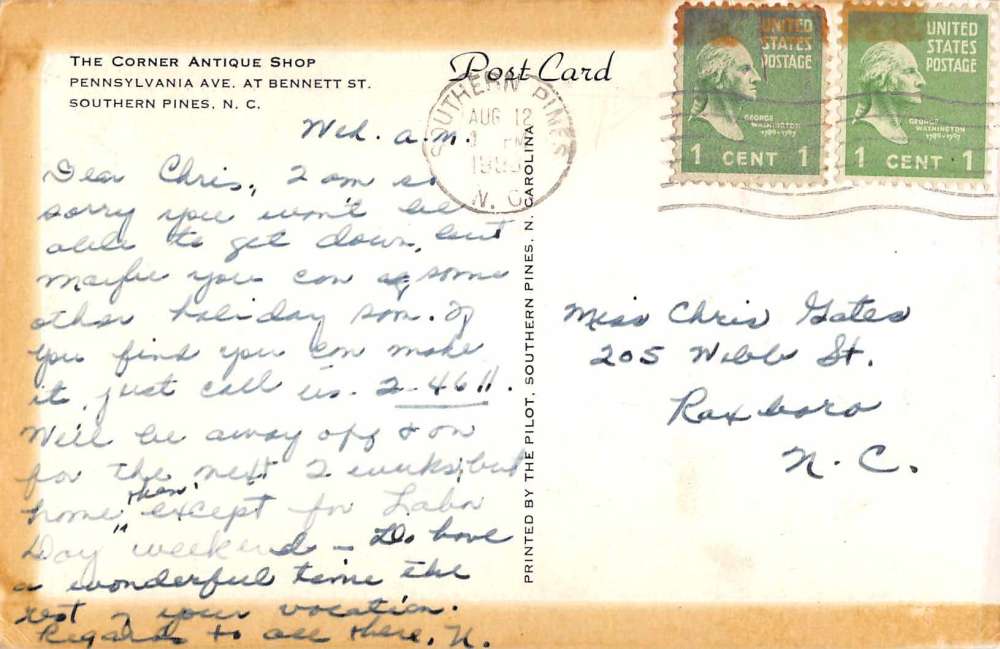 THE CORNER ANTIQUE SHOP
PENNSYLVANIA AVE. AT BENNETT ST.
SOUTHERN PINES, N. C.
Post Card
SOUTHERN PINES
AUG 12
PM
N. C.
UNITED
STATES
POSTAGE
GEORGE
WASHINGTON
1789-1797
1 CENT 1
UNITED
STATES
POSTAGE
GEORGE
WASHINGTON
1789-1797
1 CENT 1
Wed. a.m.
Dear Chris, I am so
sorry you won't be
able to get down, but
maybe you can some
other holiday soon. If
you find you can make
it, just call us. 2-4611.
We'll be away off & on
for the next 2 weeks, but
home then except for Labor
Day weekend – Do have
a wonderful time the
rest of your vacation.
Regards to all there, N.
PRINTED BY THE PILOT, SOUTHERN PINES, N. CAROLINA
Miss Chris Gates
205 Webb St.
Roxboro
N. C.